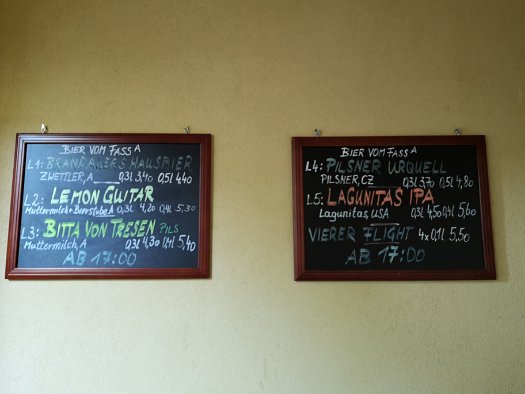 BIER VOM FASS A
L1: BRANDAUERS HAUSBIER
ZWETTLER, A 0,3l 3,40 0,5l 4,40
L2: LEMON GUITAR
Muttermilch + Bierstube A 0,3l 4,20 0,4l 5,30
L3: BITTA VON TRESEN PILS
Muttermilch, A 0,3l 4,30 0,4l 5,40
AB 17:00
BIER VOM FASS A
L4: PILSNER URQUELL
PILSNER, CZ 0,3l 3,70 0,5l 4,80
L5: LAGUNITAS IPA
Lagunitas, USA 0,3l 4,50 0,4l 5,60
VIERER FLIGHT 4x0,1l 5,50
AB 17:00